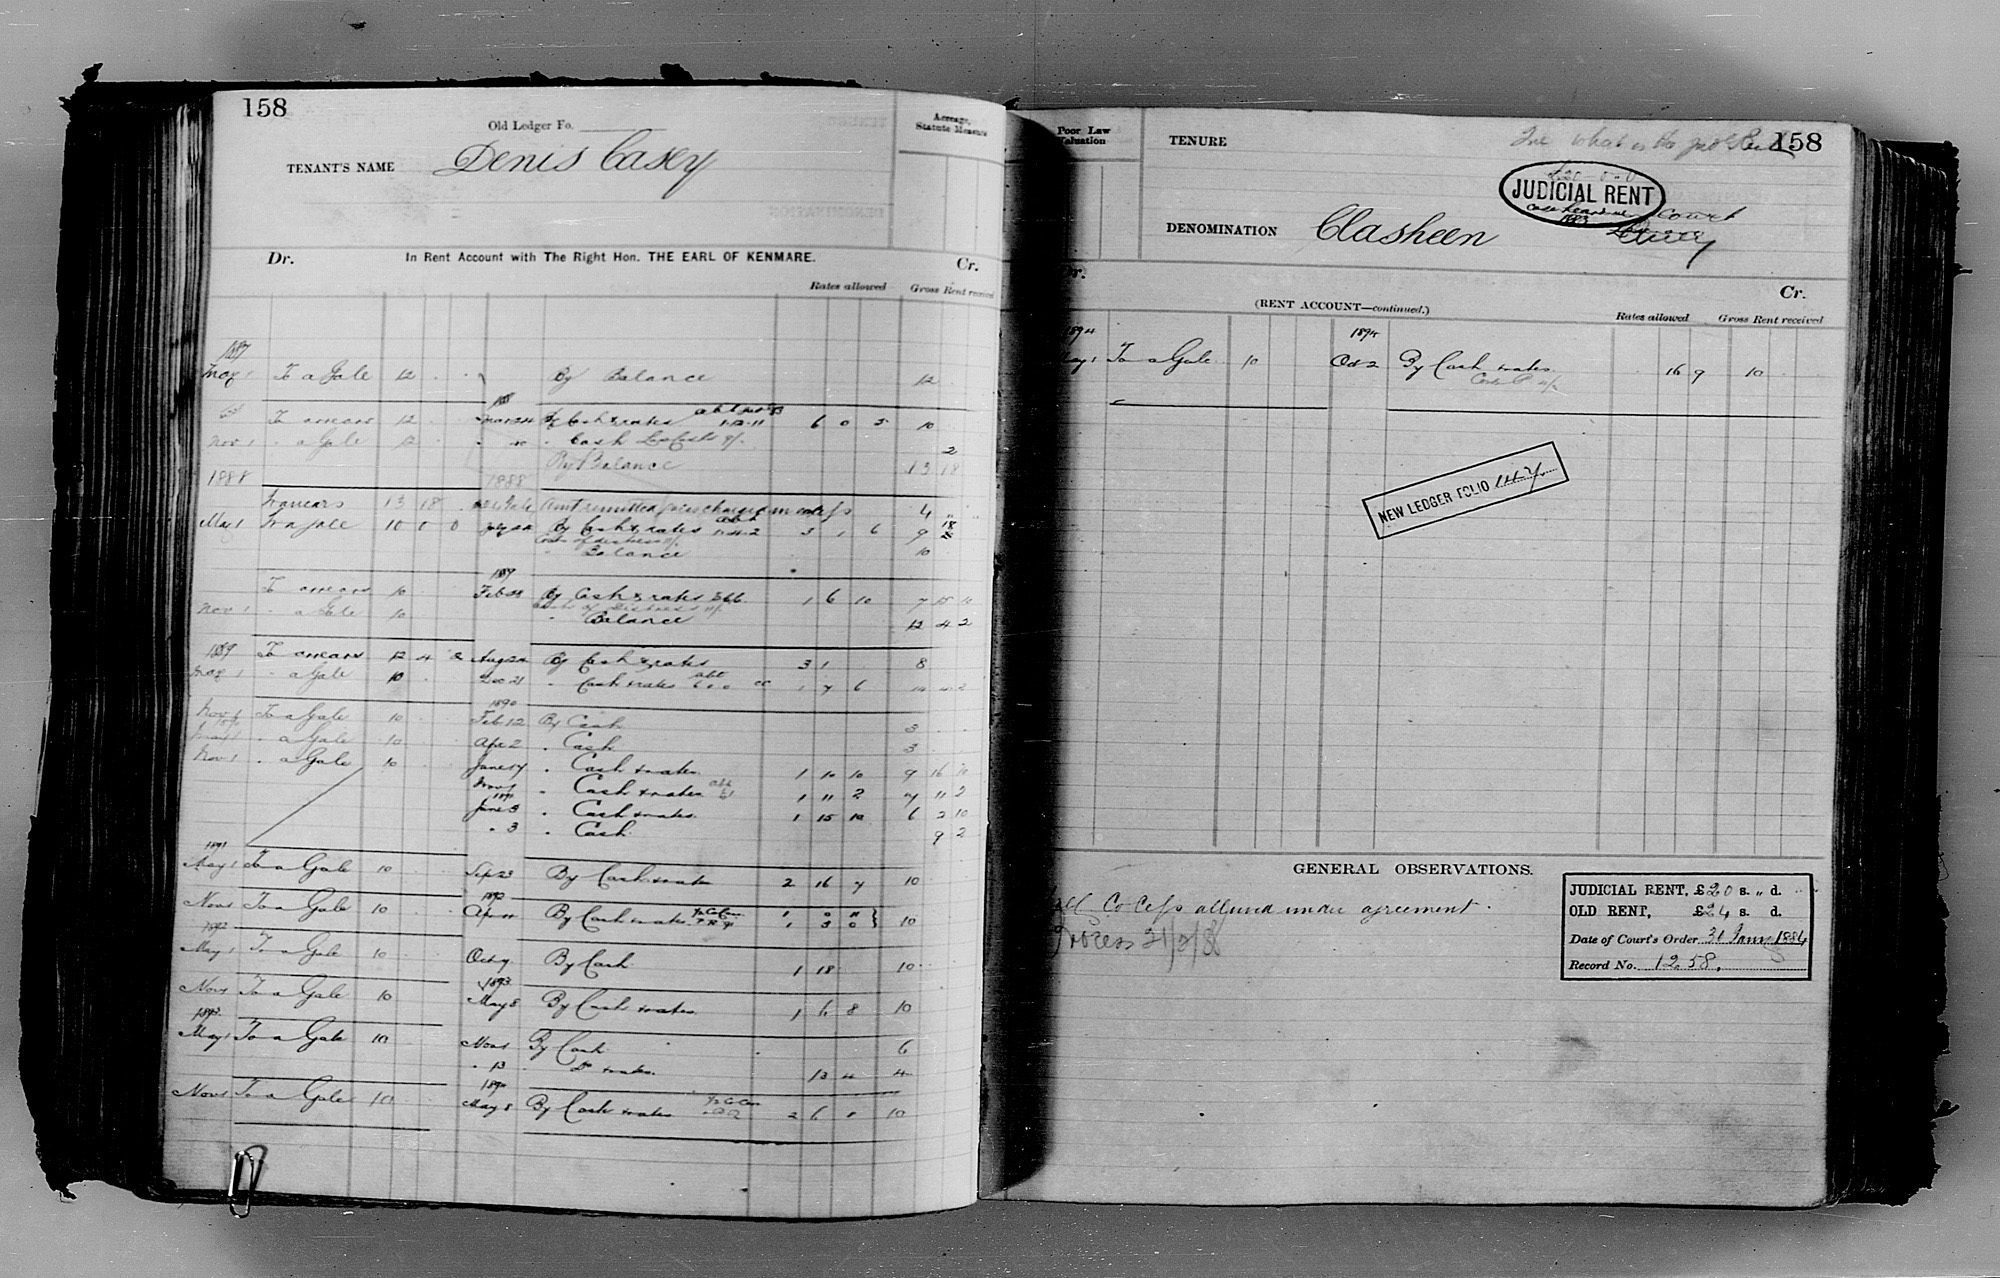 158
Old Ledger Fo.
Acreage, Statute Measure
TENANT'S NAME Denis Casey
Dr. In Rent Account with The Right Hon. THE EARL OF KENMARE. Cr.
Rates allowed Gross Rent received
1887
May 1 To a Gale 12 By Balance 12
To arrears 12 Mar 24 By Cash & rates 6 0 5 10
Nov 1 " a Gale 12 " Cash 2
By Balance 13 18
1888 1888
To arrears 13 18 Amt remitted 4
May 1 To a Gale 10 0 0 July By Cash & rates 3 1 6 9 18
Costs of distress
Balance 10
1889
To arrears 10 Feb By Cash & rates 1 6 10 7 15 10
Nov 1 " a Gale 10 Costs of Distress
" Balance 12 4 2
1889 To arrears 12 4 2 Aug 22 By Cash & rates 3 1 8
May 1 " a Gale 10 Dec 21 " Cash & rates 1 7 6 14 4 2
1890
Nov 1 To a Gale 10 Feb 12 By Cash 3
May 1 " a Gale 10 Apr 2 " Cash 3
Nov 1 " a Gale 10 June 17 " Cash & rates 1 10 10 9 16 10
Nov 1 " Cash & rates 1 11 2 7 11 2
1891
June 3 " Cash & rates 1 15 10 6 2 10
" 3 " Cash 9 2
1891
May 1 To a Gale 10 Sep 23 By Cash & rates 2 16 7 10
1892
Nov 1 To a Gale 10 Apr 11 By Cash & rates 1 0 11 10
1 3 0
1892
May 1 To a Gale 10 Oct 7 By Cash 1 18 10
1893
Nov 1 To a Gale 10 May 8 By Cash & rates 1 6 8 10
1893
May 1 To a Gale 10 Nov 1 By Cash 6
" 13 Do & rates 13 4 4
1894
Nov 1 To a Gale 10 May 8 By Cash & rates 2 6 1 10
Poor Law Valuation
TENURE
What is the Jud Rent
158
£20-0-0
JUDICIAL RENT
1883
Court
DENOMINATION Clasheen
Dr. Cr.
(RENT ACCOUNT—continued.)
Rates allowed Gross Rent received
1894 1894
May 1 To a Gale 10 Oct 2 By Cash & rates 16 9 10
NEW LEDGER FOLIO 147
GENERAL OBSERVATIONS.
Co Cess allowed under agreement.
Process 21/2/88
JUDICIAL RENT, £20 s. " d.
OLD RENT, £24 s. d.
Date of Court's Order 31 Jany 1884
Record No. 1258.